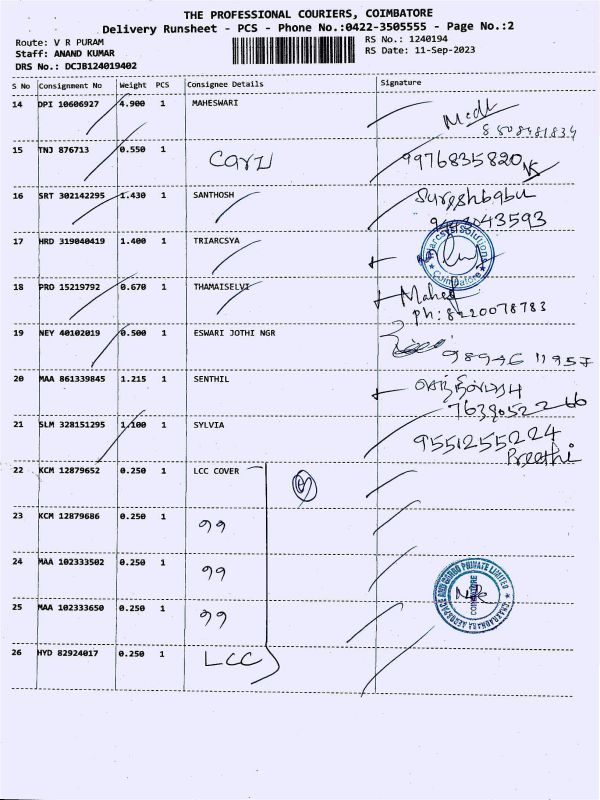 THE PROFESSIONAL COURIERS, COIMBATORE
Delivery Runsheet - PCS - Phone No.:0422-3505555 - Page No.:2
Route: V R PURAM
RS No.: 1240194
Staff: ANAND KUMAR
RS Date: 11-Sep-2023
DRS No.: DCJB124019402
S No Consignment No Weight PCS Consignee Details Signature
14 DPI 10606927 4.900 1 MAHESWARI
15 TNJ 876713 0.550 1 Carz 9976835820
16 SRT 302142295 1.430 1 SANTHOSH Sureshbabu
17 HRD 319040419 1.400 1 TRIARCSYA
18 PRO 15219792 0.670 1 THAMAISELVI Mahes
Ph: 8220078783
19 NEY 40102019 0.500 1 ESWARI JOTHI NGR
20 MAA 861339845 1.215 1 SENTHIL
7639052266
21 SLM 328151295 1.100 1 SYLVIA 9551255224
Preethi
22 KCM 12879652 0.250 1 LCC COVER
23 KCM 12879686 0.250 1 99
24 MAA 102333502 0.250 1 99
25 MAA 102333650 0.250 1 99
26 HYD 82924017 0.250 1 LCC